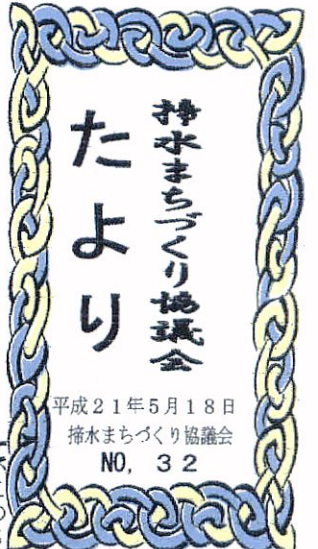 掃水まちづくり協議会
たより
平成21年5月18日
掃水まちづくり協議会
NO, 32